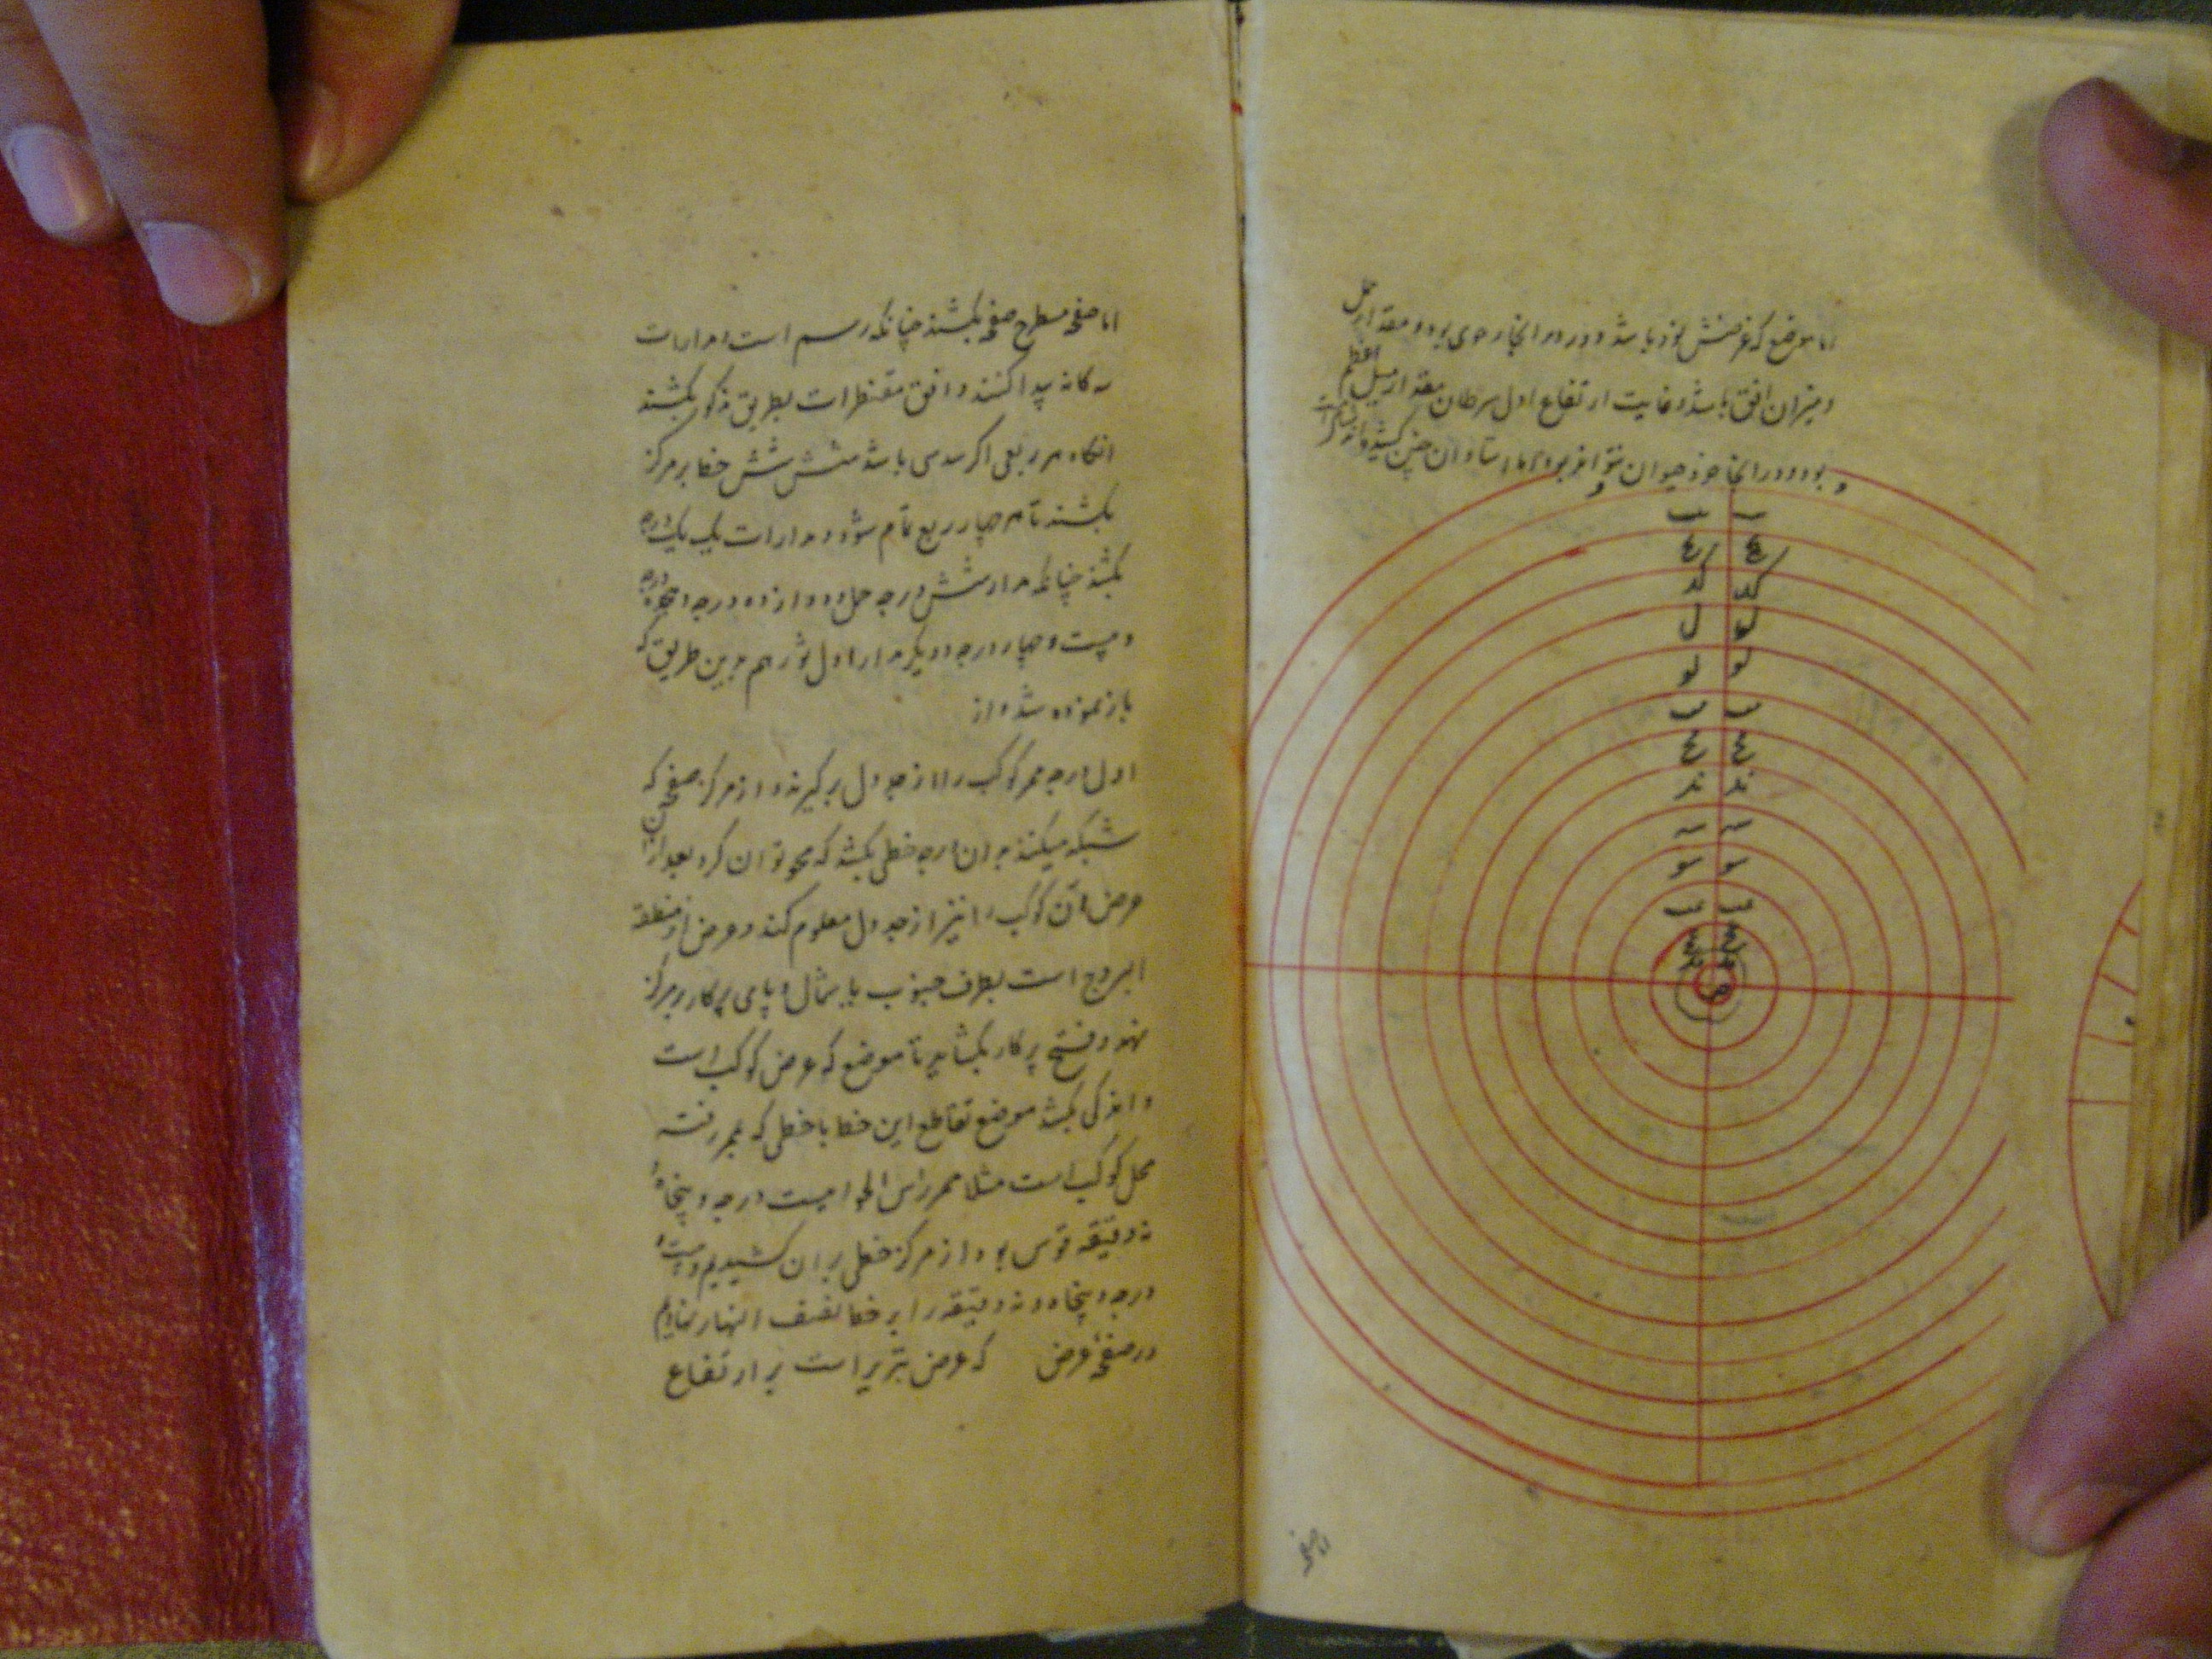 اما موضع که عرضش نود باشد و دور در انجا رحوی بود و مقدار حمل
و میزان افق باشد و غایت ارتفاع اول سرطان مقدار میل اعظم
بود و در انجا خود حیوان نتواند بود
و و
یب یب
یح یح
کد کد
ل ل
لو لو
مب مب
مح مح
ند ند
س س
سو سو
عب عب
عح عح
فد فد
ص
اما صفحه
اما صفحه مسطح صفحه بکشند چنانکه رسم است و مدارات
سه کانه پیدا کنند و افق مقنطرات بطریق مذکور بکشند
انکاه هر ربعی اکر سدسی باشد شش شش خط بر مرکز
بکشند تا هر چهار ربع تمام شود و مدارات یک یک درجه
بکشند چنانکه مدار شش درجه حمل و دوازده درجه و هجده درجه
و بیست و چهار درجه و دیکر مدار اول ثور هم برین طریق که
باز نموده شد و از
اول درجه ممر کوکب را از جدول برکیرند و از مرکز صفحه که
شبکه میکنند بر ان درجه خطی بکشد که محو توان کرد بعد ازان
عرض ان کوکب را نیز از جدول معلوم کند و عرض از منطقه
البروج است بطرف جنوب یا بشمال و پای پرکار بر مرکز
نهد و فتح پرکار بکشاید تا موضع که عرض کوکب است
و اندکی بکشد موضع تقاطع این خط با خطی که بممر رفته
محل کوکب است مثلا ممر راس الحوا بیست درجه و پنجاه و
نه دقیقه قوس بود از مرکز خطی بر ان کشیدیم و بیست و
درجه و پنجاه و نه دقیقه را بر خط نصف النهار نهادیم
در صفحه عرض که عرض تبریز است بر ارتفاع